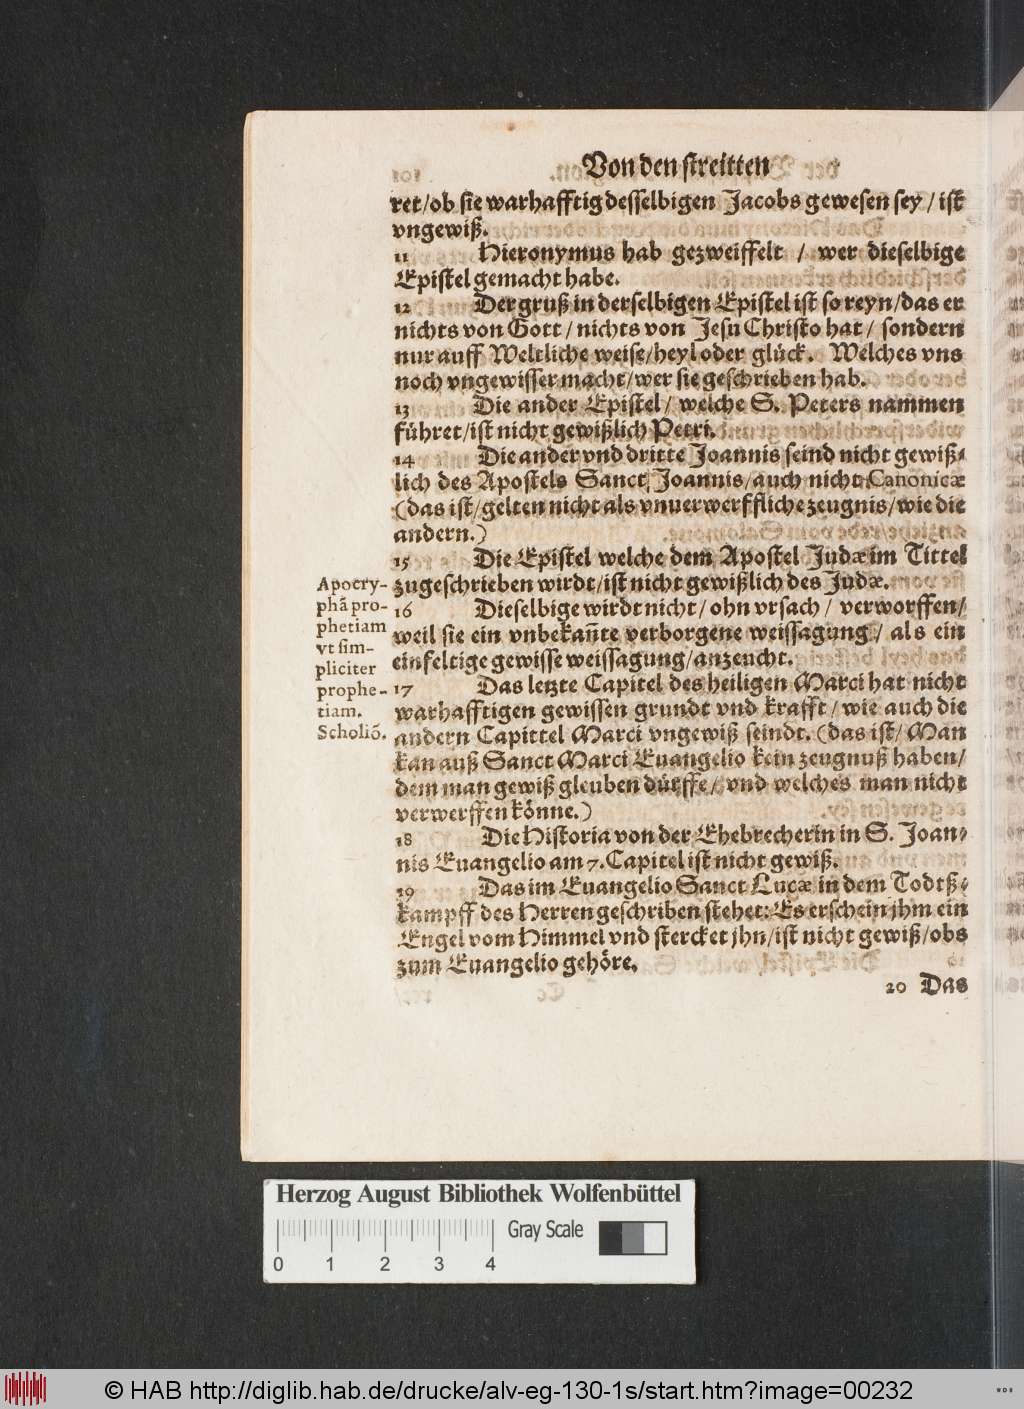 Von den streitten
ret/ob sie warhafftig desselbigen Jacobs gewesen sey / ist
vngewiß.
11 Hieronymus hab gezweiffelt / wer dieselbige
Epistel gemacht habe.
12 Der gruß in derselbigen Epistel ist so reyn/das er
nichts von Gott / nichts von Jesu Christo hat / sondern
nur auff Weltliche weise/heyl oder glück. Welches vns
noch vngewisser macht/wer sie geschrieben hab.
13 Die ander Epistel / welche S. Peters nammen
führet/ist nicht gewißlich Petri.
14 Die ander vnd dritte Joannis seind nicht gewiß⸗
lich des Apostels Sanct Joannis/auch nicht Canonicæ
(das ist/gelten nicht als vnuerwerffliche zeugnis/wie die
andern.)
15 Die Epistel welche dem Apostel Judæ im Tittel
zugeschrieben wirdt/ist nicht gewißlich des Judæ.
16 Dieselbige wirdt nicht / ohn vrsach / verworffen/
weil sie ein vnbekañte verborgene weissagung / als ein
einfeltige gewisse weissagung/anzeucht.
Apocry-
phā pro-
phetiam
vt sim-
pliciter
prophe-
tiam.
Scholiō.
17 Das letzte Capitel des heiligen Marci hat nicht
warhafftigen gewissen grundt vnd krafft / wie auch die
andern Capittel Marci vngewiß seindt. (das ist/ Man
kan auß Sanct Marci Euangelio kein zeugnuß haben/
dem man gewiß gleuben dürffe / vnd welches man nicht
verwerffen könne.)
18 Die Historia von der Ehebrecherin in S. Joan⸗
nis Euangelio am 7. Capitel ist nicht gewiß.
19 Das im Euangelio Sanct Lucæ in dem Todtß⸗
kampff des Herren geschriben stehet: Es erschein jhm ein
Engel vom Himmel vnd stercket jhn/ist nicht gewiß/obs
zum Euangelio gehöre.
20 Das
Herzog August Bibliothek Wolfenbüttel
Gray Scale
0 1 2 3 4
© HAB http://diglib.hab.de/drucke/alv-eg-130-1s/start.htm?image=00232